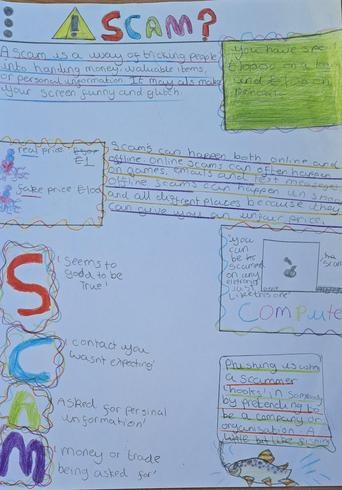 SCAM?
A scam is a way of tricking people
into handing money, valuable items,
or personal information. It may als make
your screen funny and glitch.
you have spe
£1000 on a
and £1000 on
real price
£1
fake price £100
Scams can happen both online and
offline. online scams can often happen
on games, emails and text messages
offline scams can happen in
and all different places because they
can give you an unfair price.
S
'Seems to
good to be
True'
C
'contact you
wasn't expecting'
A
'Asked for persinal
information'
M
'money or trade
being asked for'
you
can
be
scamed
on any
eletronic
Just
Like this one'
Compute
Phishing is when
a scammer
'hooks' in someone
by pretending to
be a company or
organisation. A
little bit like